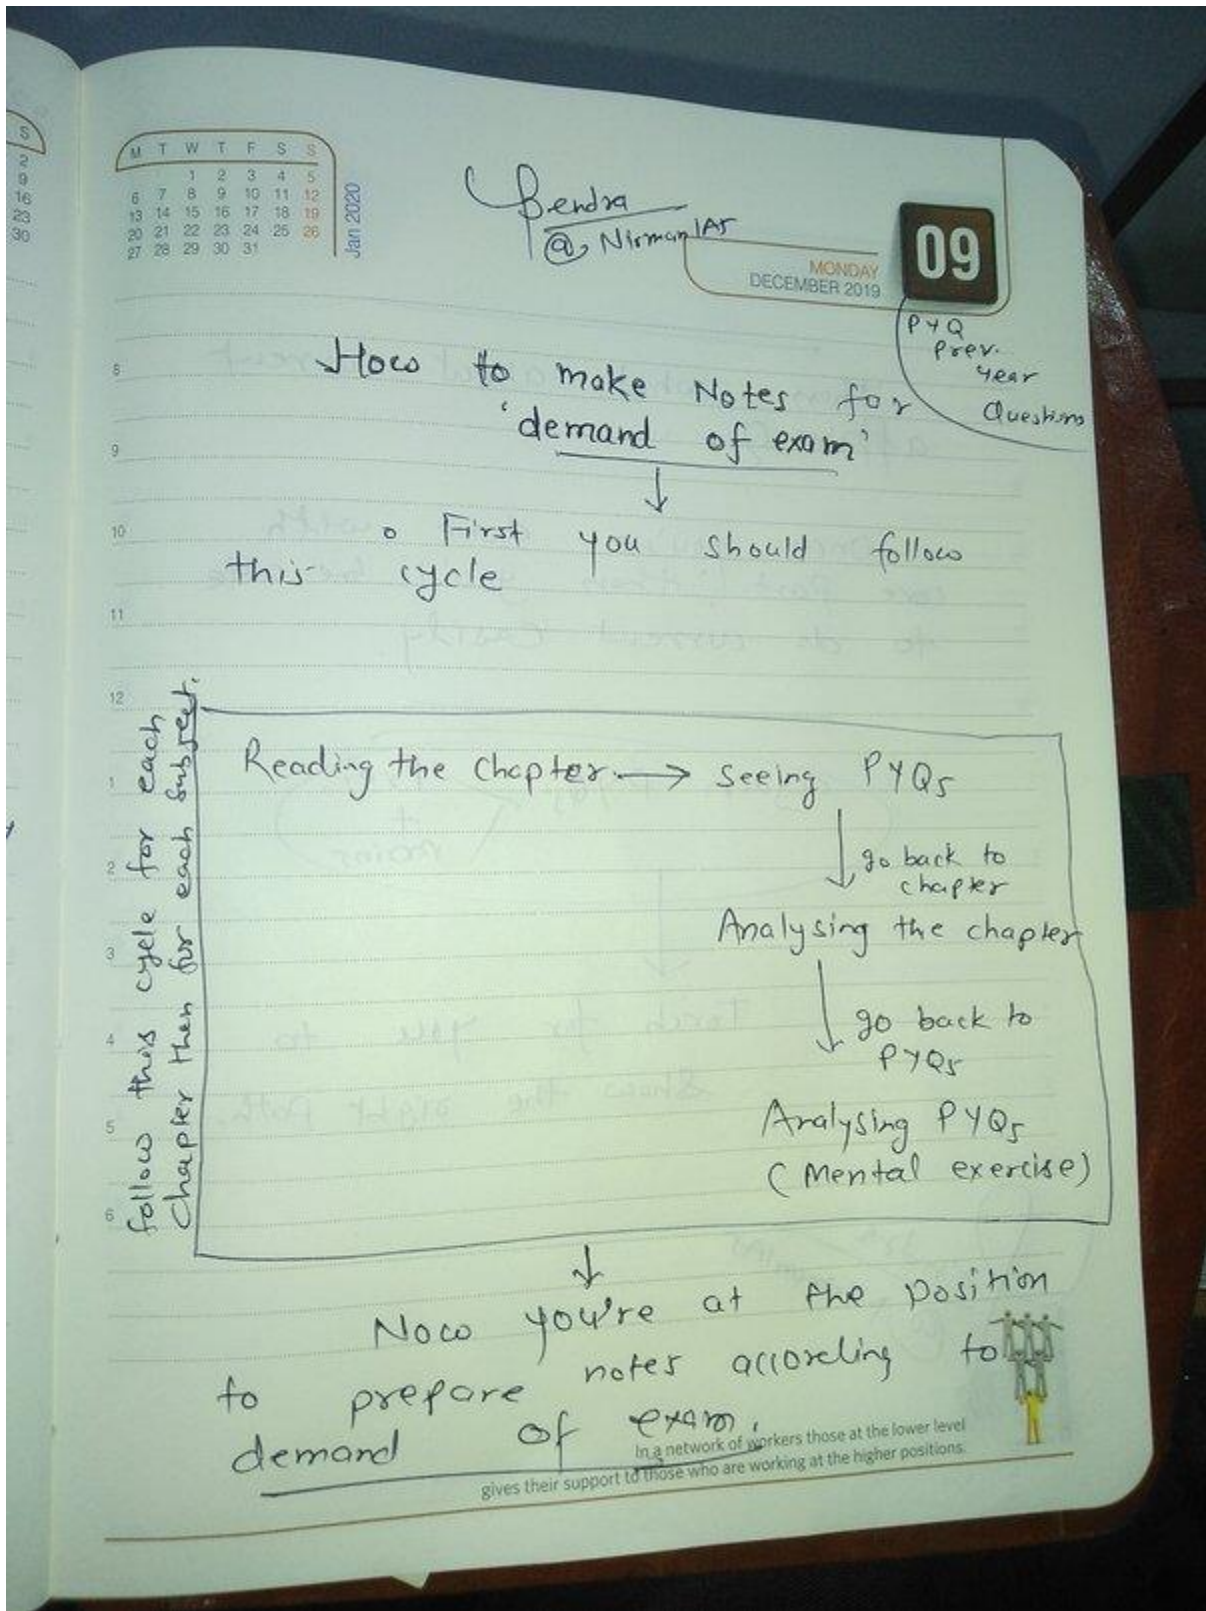 S
2
9
16
23
30
M T W T F S S
1 2 3 4 5
6 7 8 9 10 11 12
13 14 15 16 17 18 19
20 21 22 23 24 25 26
27 28 29 30 31
Jan 2020
@ NirmanIAS
MONDAY
DECEMBER 2019
09
PYQ
Prev.
Year
Questions
8
How to make Notes for
'demand of exam'
9
10
o First you should follow
this cycle
11
12
follow this cycle for each
chapter then for each subject.
1
Reading the chapter → seeing PYQs
2
go back to
chapter
Analysing the chapter
3
4
go back to
PYQs
5
Analysing PYQs
(Mental exercise)
6
Now you're at the position
to prepare notes according to
demand of exam.
In a network of workers those at the lower level
gives their support to those who are working at the higher positions.